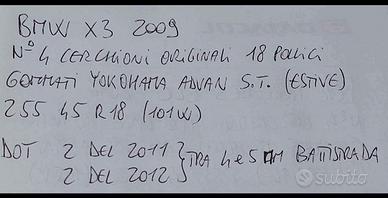 BMW X3 2009
N° 4 CERCHIONI ORIGINALI 18 POLLICI
GOMMATI YOKOHAMA ADVAN S.T. (ESTIVE)
255 45 R18 (101W)
DOT 2 DEL 2011 } TRA 4 e 5 MM BATTISTRADA
2 DEL 2012
subito